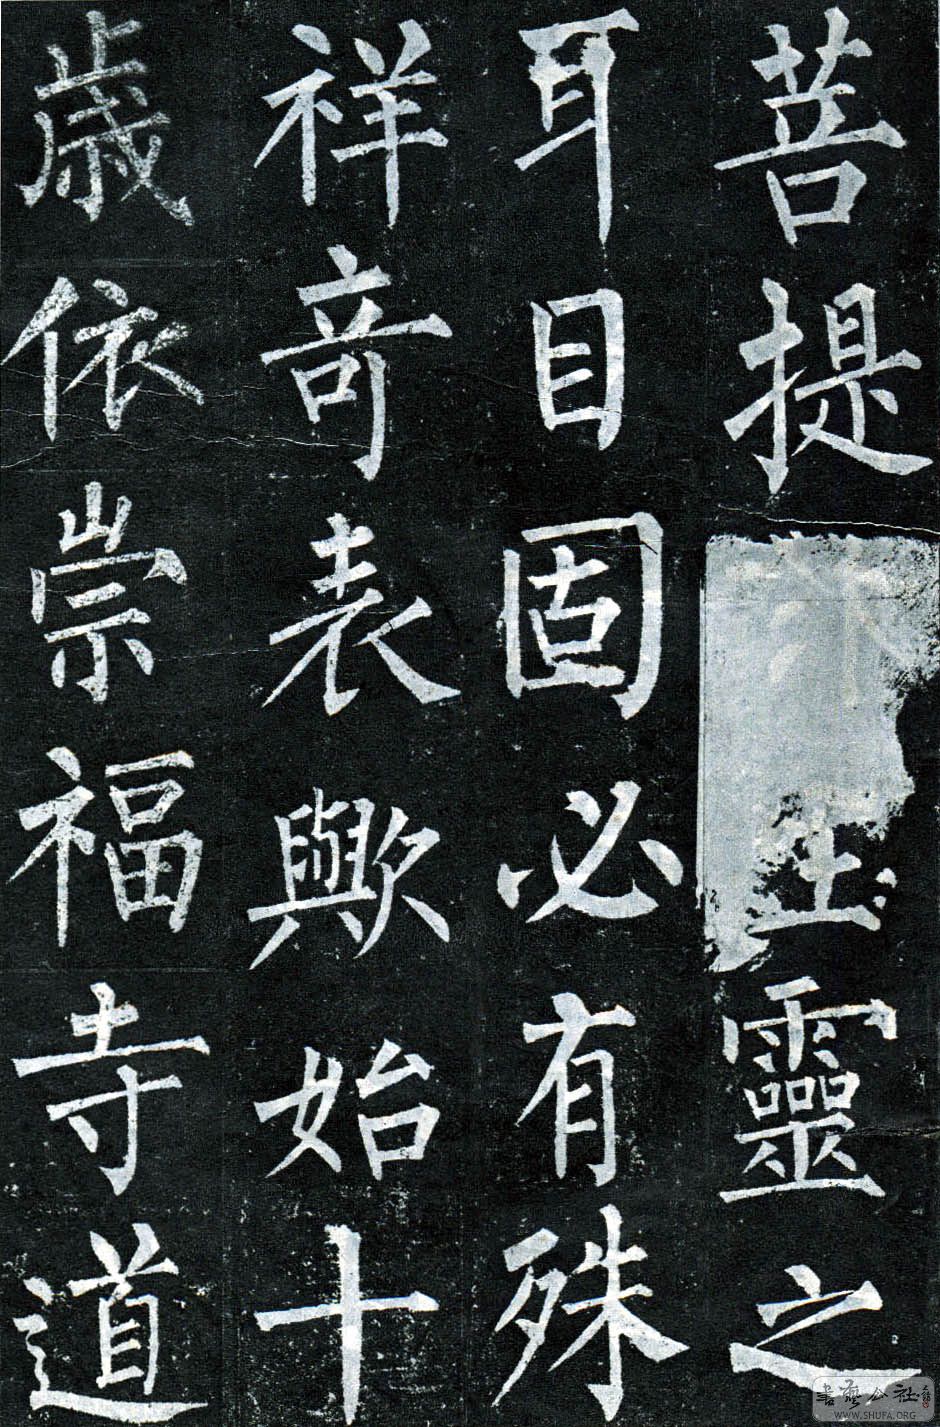 菩提生靈之
耳目固必有殊
祥奇表歟始十
歲依崇福寺道
書藝公社
WWW.SHUFA.ORG